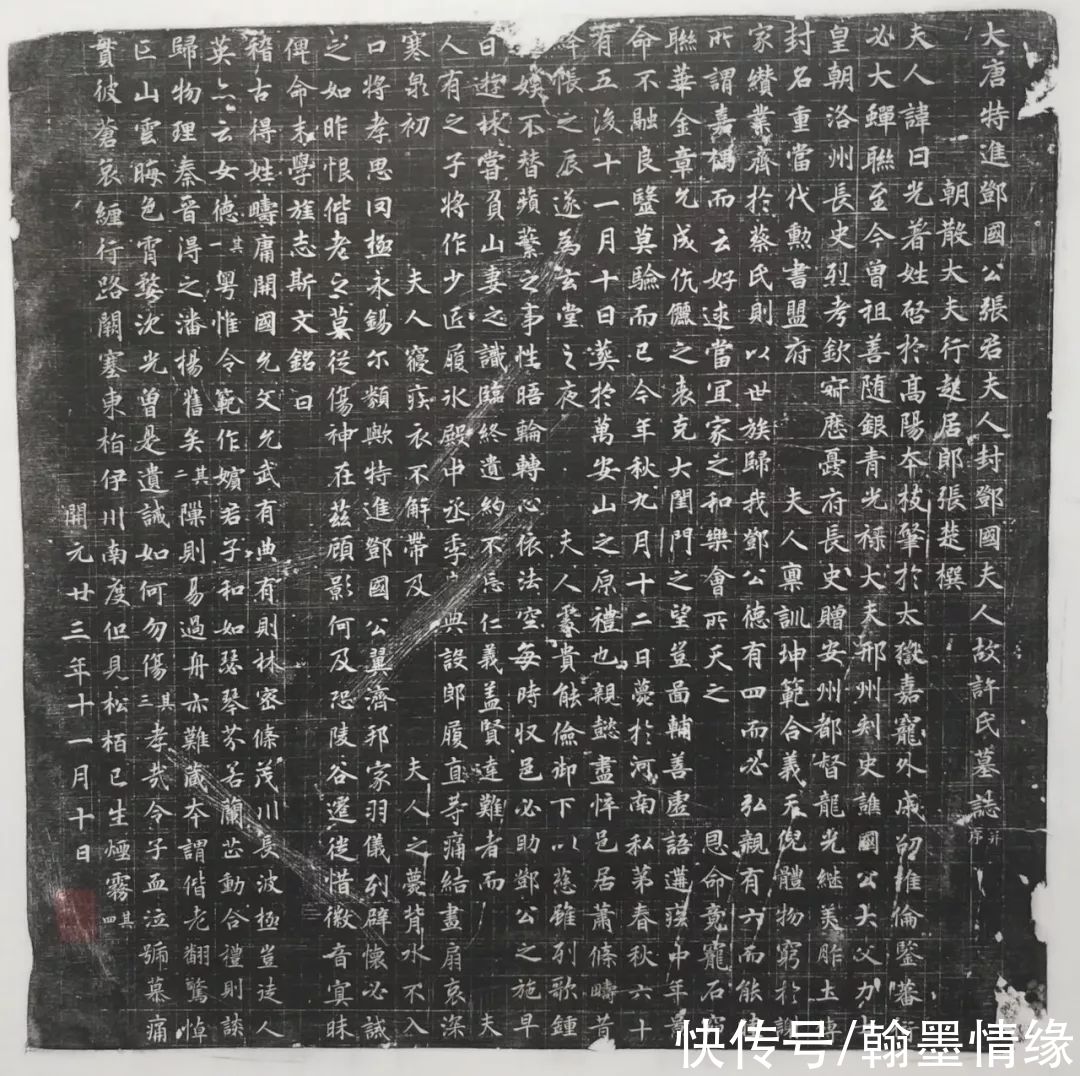 大唐特進鄧國公張君夫人封鄧國夫人故許氏墓誌并序
朝散大夫行起居郎張楚撰
夫人諱曰光著姓啓於高陽本枝肇於太嶽嘉寵外戚劭維倫鑒蕃
必大蟬聯至今曾祖善隨銀青光祿大夫邢州刺史譙國公大父力士
皇朝洛州長史烈考欽寂應夔府長史贈安州都督龍光繼美胙土
封名重當代勲書盟府 夫人稟訓坤範合義天倪體物窮於
家纘業齊於蔡氏則以世族歸我鄧公德有四而必弘親有六而能
所謂嘉耦而云好逑當宜家之和樂會所天之 恩命竟寵石
聯華金章允成伉儷之表克大閨門之望豈啚輔善虛語遘疾中年景
命不融良醫莫驗而已今年秋九月十二日薨於河南私第春秋六十
有五後十一月十日葬於萬安山之原禮也親懿盡悴邑居蕭條疇昔
帳之辰遂為玄堂之夜 夫人爰貴能儉御下以慈雖列歌鍾
娛不替蘋蘩之事性晤輪轉心依法空每時収邑必助鄧公之施早
日遊林嘗負山妻之識臨終遺約不忘仁義盖賢達難者而 夫
人有之子將作少匠履冰殿中丞季良典設郎履直等痛結晝扇哀深
寒泉初 夫人寢疾衣不解帶及 夫人之薨背水不入
口將孝思罔極永錫尔類歟特進鄧國公翼濟邦家羽儀列辟懷必誡
之如昨恨偕老之莫從傷神在茲顧影何及恐陵谷遷徙惜徽音寘昧
俾命末學旌志斯文銘曰
稽古得姓疇庸開國允文允武有典有則林密條茂川長波極豈徒人
英亦云女德其一粵惟令範作嬪君子和如瑟琴芬若蘭芷動合禮則談
歸物理秦晉得之潘楊舊矣其二隟則易過舟亦難藏本謂偕老翻驚悼
亡山雲晦色霄婺沈光曾是遺誡如何勿傷其三孝哉令子血泣號慕痛
貫彼蒼哀纏行路闕塞東指伊川南度但見松栢已生煙霧其四
開元廿三年十一月十日
快传号/翰墨情缘